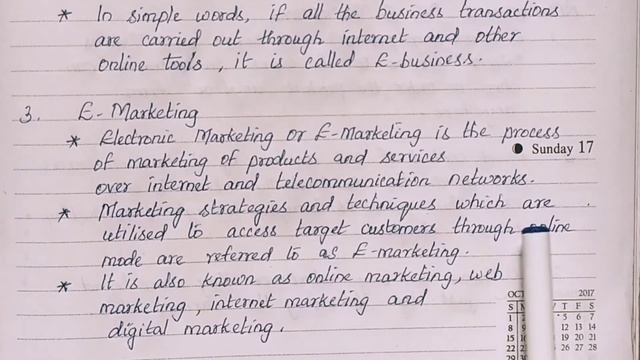 * In simple words, if all the business transactions
are carried out through internet and other
online tools, it is called E-business.
3. E-Marketing
* Electronic Marketing or E-Marketing is the process
of marketing of products and services
Sunday 17
over internet and telecommunication networks.
* Marketing strategies and techniques which are
utilised to access target customers through online
mode are referred to as E-marketing.
* It is also known as online marketing, web
marketing, internet marketing and
digital marketing.
OCT 2017
S M T F S
1 2 5 6 7
8 12 13 14
15 19 20 21
22 26 27 28
29